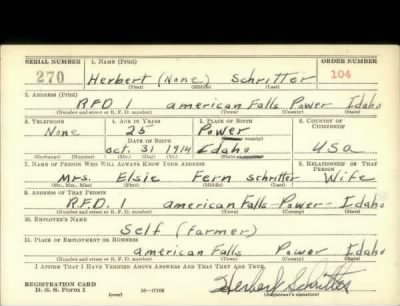 SERIAL NUMBER 1. NAME (Print) ORDER NUMBER
270 Herbert (None) Schritter 104
(First) (Middle) (Last)
2. ADDRESS (Print)
RFD 1 american Falls Power Idaho
(Number and street or R. F. D. number) (Town) (County) (State)
3. TELEPHONE 4. AGE IN YEARS 5. PLACE OF BIRTH 6. COUNTRY OF CITIZENSHIP
None 25 Power
DATE OF BIRTH (Town or county)
Oct. 31 1914 Idaho USA
(Exchange) (Number) (Mo.) (Day) (Yr.) (State or country)
7. NAME OF PERSON WHO WILL ALWAYS KNOW YOUR ADDRESS 8. RELATIONSHIP OF THAT PERSON
Mrs. Elsie Fern Schritter Wife
(Mr., Mrs., Miss) (First) (Middle) (Last)
9. ADDRESS OF THAT PERSON
R.F.D. 1 american Falls - Power - Idaho
(Number and street or R. F. D. number) (Town) (County) (State)
10. EMPLOYER'S NAME
Self (Farmer)
11. PLACE OF EMPLOYMENT OR BUSINESS
american Falls Power Idaho
(Number and street or R. F. D. number) (Town) (County) (State)
I AFFIRM THAT I HAVE VERIFIED ABOVE ANSWERS AND THAT THEY ARE TRUE.
REGISTRATION CARD Herbert Schritter
D. S. S. Form 1 (over) 16-17105 (Registrant's signature)